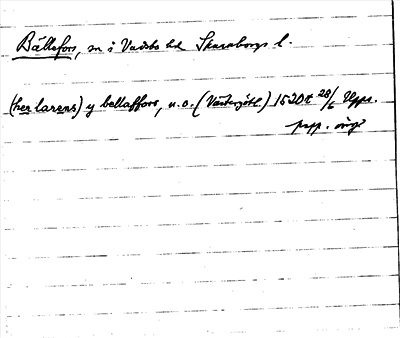 Bällefors, sn i Vadsbo hd Skaraborgs l.
(her larens) y bellaffors, u.o. (Västergötl.) 1520t 28/6 Upps.
papp. orig.